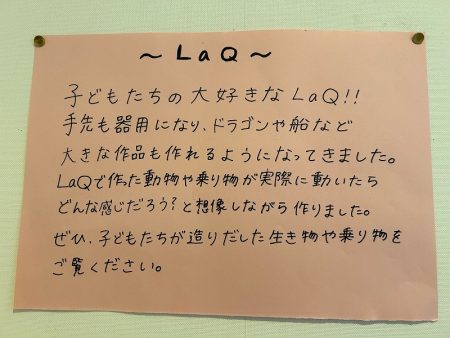 ～LaQ～
子どもたちの大好きなLaQ!!
手先も器用になり、ドラゴンや船など
大きな作品も作れるようになってきました。
LaQで作った動物や乗り物が実際に動いたら
どんな感じだろう?と想像しながら作りました。
ぜひ、子どもたちが造りだした生き物や乗り物を
ご覧ください。